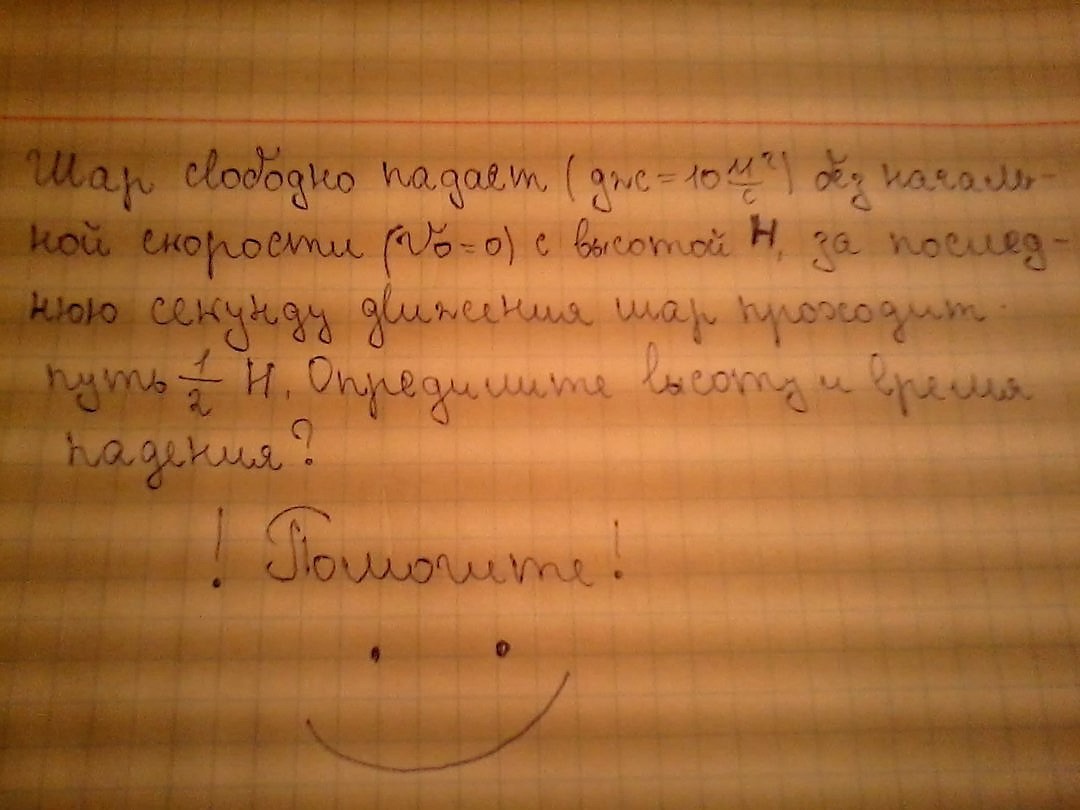 Шар свободно падает (джс = 10 м²/с) без началь-
ной скорости (V₀ = 0) с высотой H, за послед-
нюю секунду движения шар проходит
путь 1/2 H. Опредилите высоту и время
падения?
! Помогите!